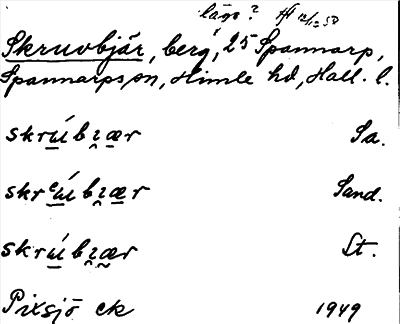 läge? Hl 12/12 50
Skruvbjär, berg, 25 Spannarp,
Spannarps sn, Himle hd, Hall. l.
skrú bɪær Sa.
skrᵉú bɪær Sand.
skrú bɪær St.
Pixsjö ek 1949